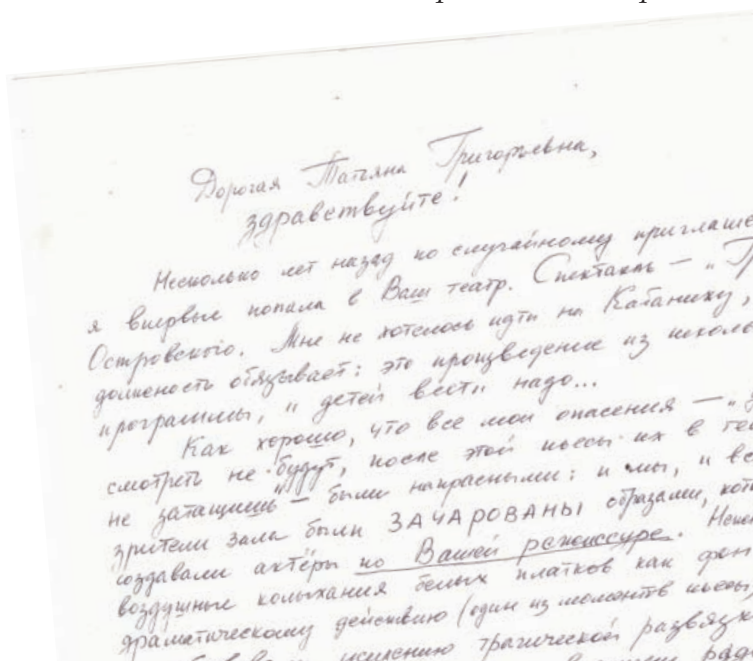 Дорогая Татьяна Григорьевна,
здравствуйте!
Несколько лет назад по случайному приглаше
я впервые попала в Ваш театр. Спектакль – „Гр
Островского. Мне не хотелось идти на Кабаниху,
должность обязывает: это произведение из школь
программы, и детей вести надо...
Как хорошо, что все мои опасения –
смотреть не будут, после этой пьесы их в те
не затащишь" – были напрасными: и мы, и вс
зрители зала были ЗАЧАРОВАНЫ образами, кот
создавали актёры по Вашей режиссуре. Неск
воздушные колыхания белых платков как фон
драматическому действию (один из моментов пьесы)
усилению трагической развязк